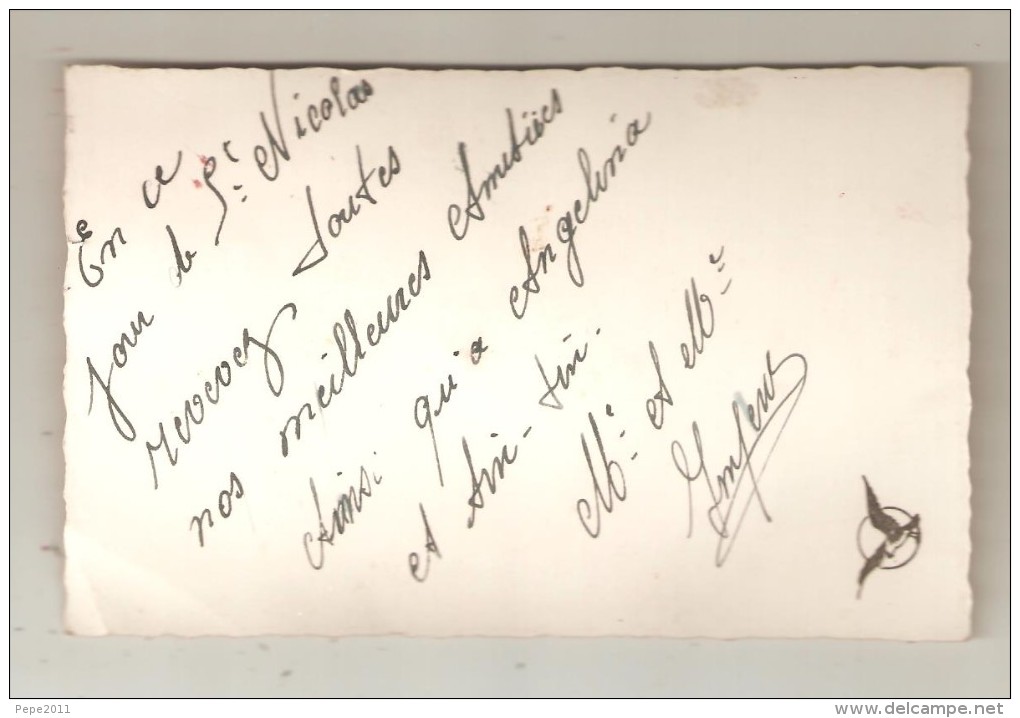 En ce
jour de St. Nicolas
recevez toutes
nos meilleures Amitiés
Ainsi qu'a Angelina
et Tin-tin.
Mr. et Mme
Pepe2011
www.delcampe.net